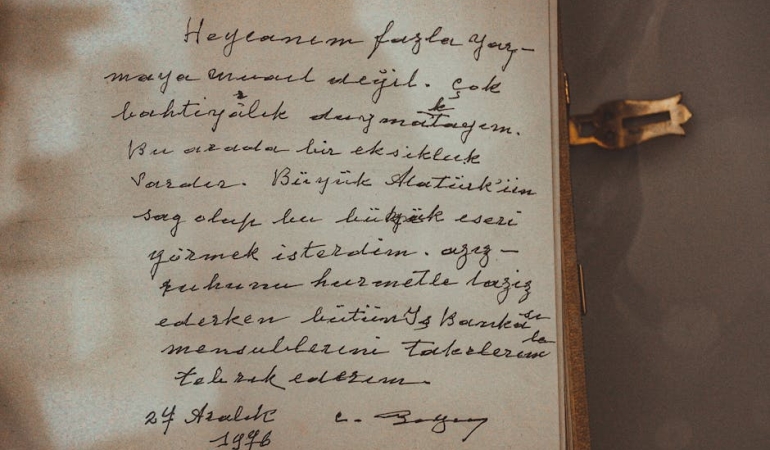 Heycanım fazla yaz-
maya müait değil. Çok
bahtiyarlık duymaktayım.
Bu arada bir eksikluk
vardır. Büyük Atatürk'ün
sag olup bu büyük eseri
görmek isterdim. aziz-
ruhunu hurmetle taziz
ederken bütün İş Bankası
mensublerini takdirlerimle
tebrik ederim.
24 Aralık
1976
c. Bayar